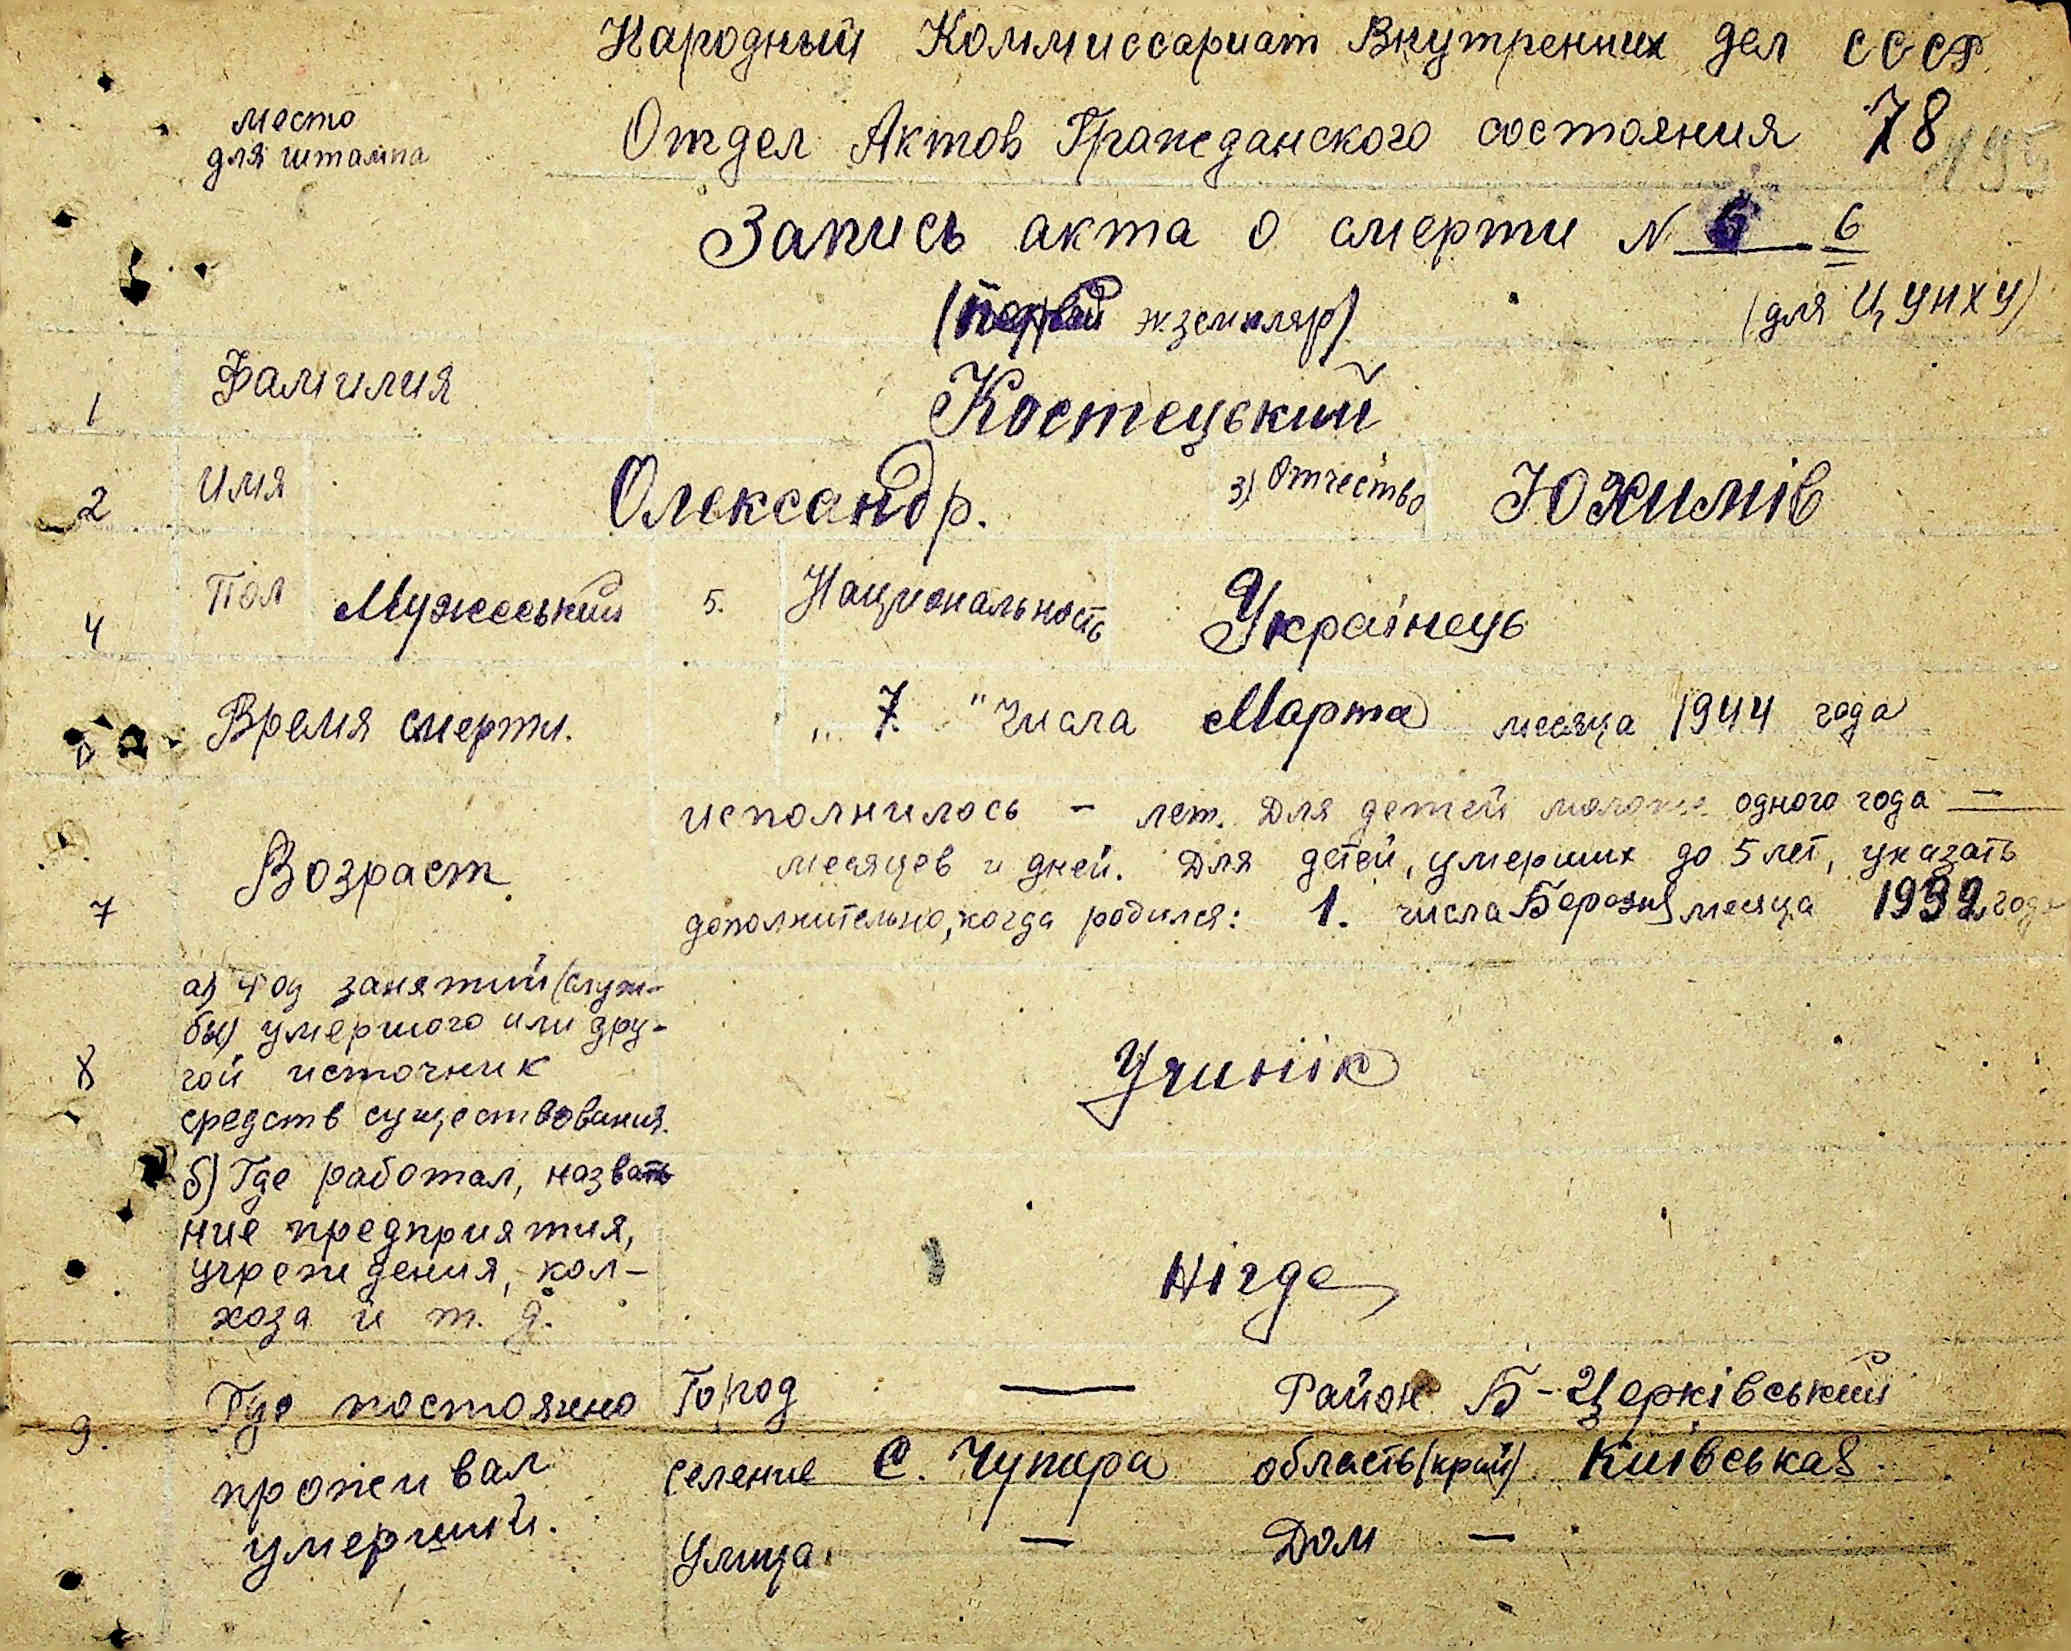 Народный Коммиссариат Внутренних дел СССР
место
для штампа
Отдел Актов Гражданского состояния 78
195
Запись акта о смерти N 6 6
(первый экземпляр) (для ЦУНХУ)
1 Фамилия Костецький
2 Имя Олександр. 3) Отчество Юхимів
4 Пол Мужеський 5. Национальность Українець
Время смерти. „ 7 " числа Марта месяца 1944 года
исполнилось - лет. Для детей моложе одного года —
7 Возраст месяцев и дней. Для детей, умерших до 5 лет, указать
дополнительно, когда родился: 1. числа Березня месяца 1932 года
а) Род занятий (служ-
бы) умершого или дру-
8 гой источник Учинік
средств существования.
б) Где работал, назва
ние предприятия,
учреждения, кол- Нігде
хоза и т. д.
9. Где постояно Город — Район Б-Церківський
проживал селение С. Чупира область (край) Київськая.
умерший. Улица — Дом —